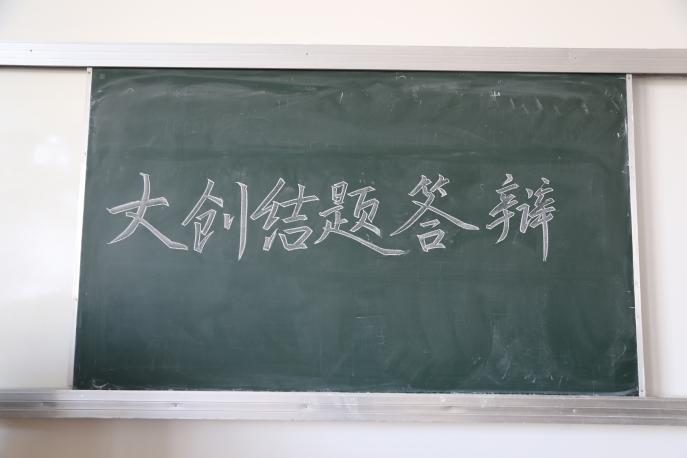 大创结题答辩